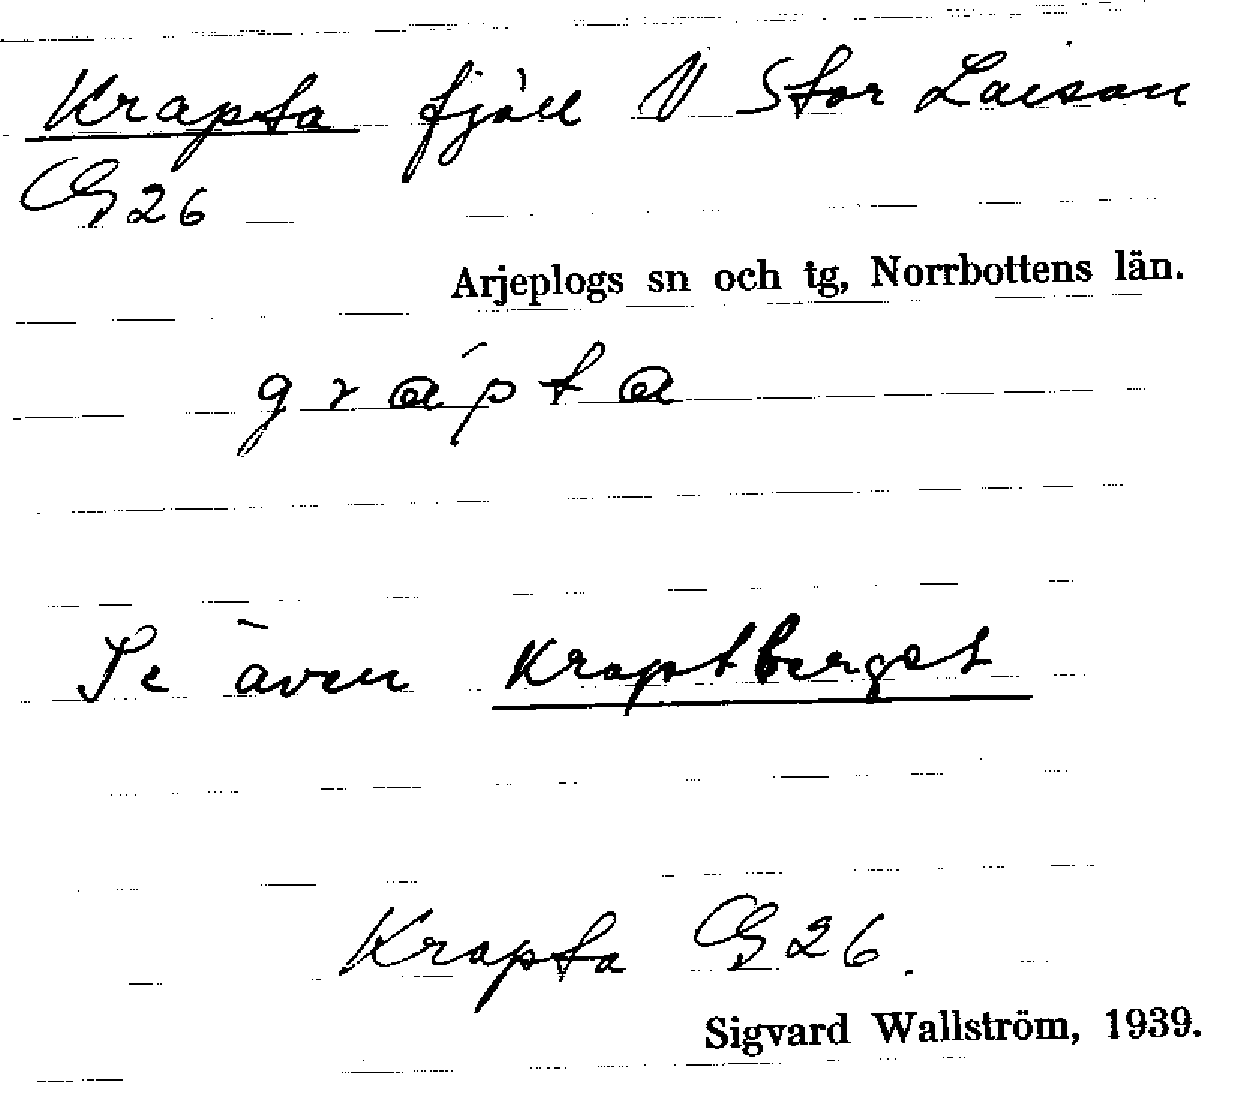 Krapta fjäll V Stor Laisan
G26
Arjeplogs sn och tg, Norrbottens län.
grápta
Se även Kraptberget
Krapta G26.
Sigvard Wallström, 1939.